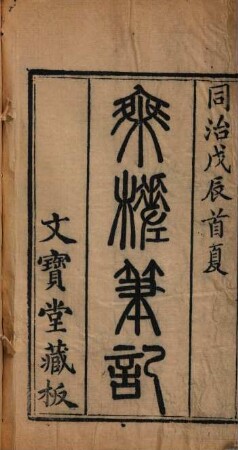 同治戊辰首夏
乘槎筆記
文寶堂藏板